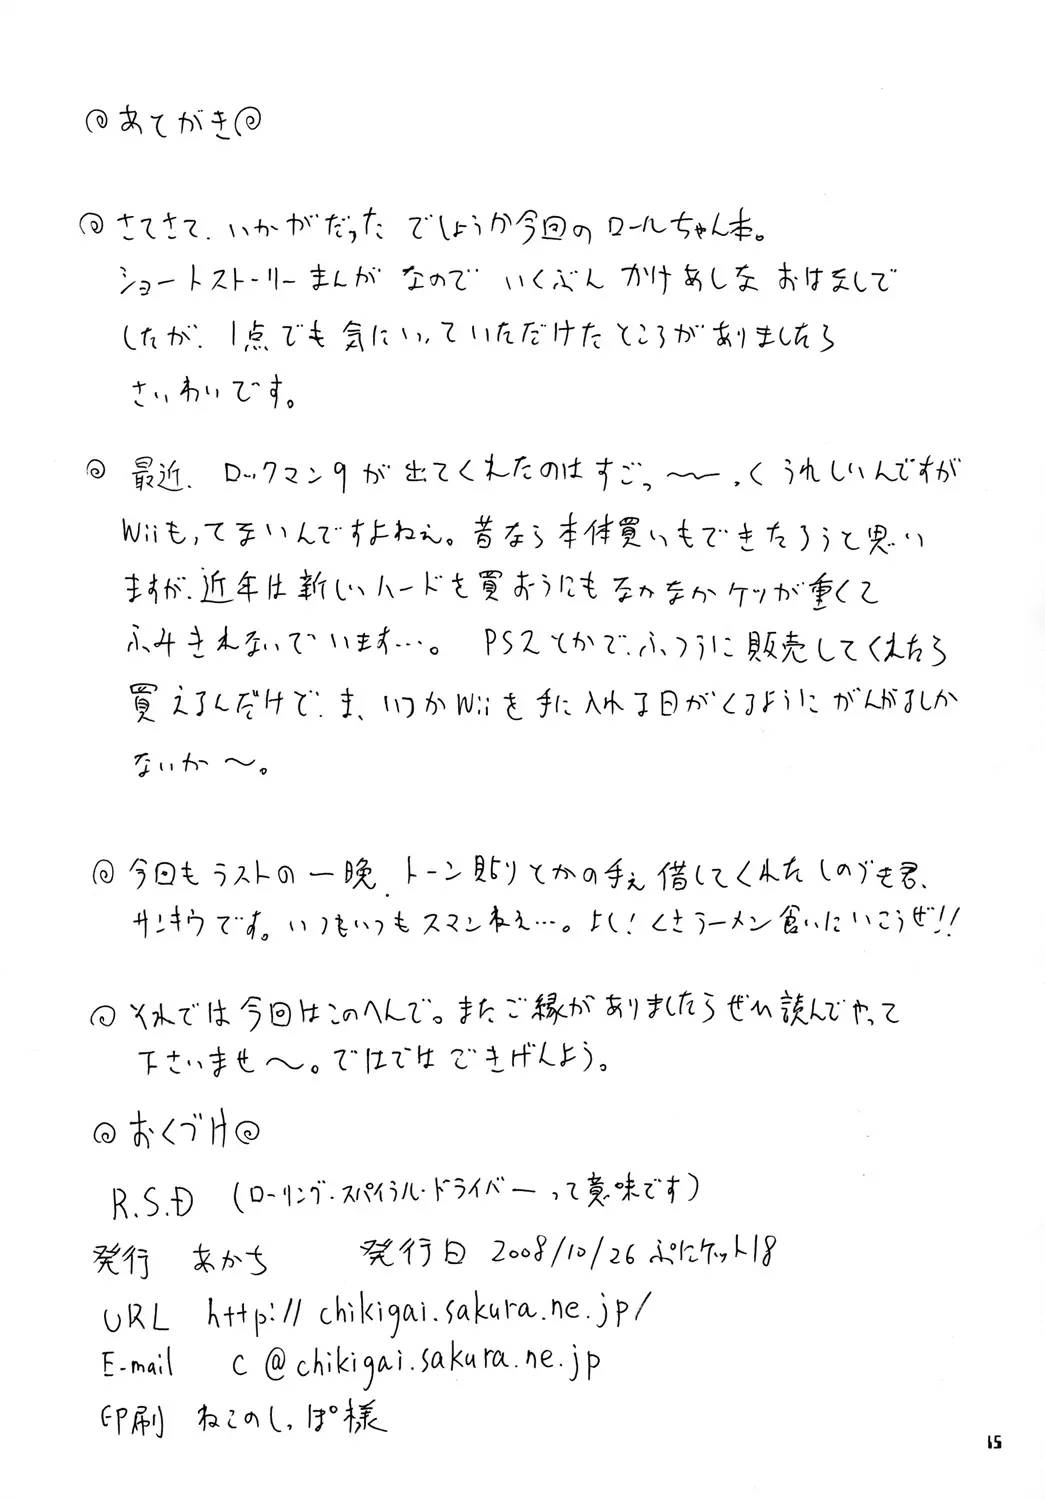 あてがき
さてさて、いかがだったでしょうか今回のロールちゃん本。
ショートストーリーまんがなのでいくぶんかけあしなおはなしで
したが、1点でも気にいっていただけたところがありましたら
さいわいです。
最近、ロックマン9が出てくれたのはすごっ〜〜っくうれしいんですが
Wiiもってないんですよねぇ。昔なら本体買いもできたろうと思い
ますが、近年は新しいハードを買おうにもなかなかケツが重くて
ふみきれないでいます…。PS2とかでふつうに販売してくれたら
買えるんだけど、ま、いつかWiiを手に入れる日がくるようにがんばるしか
ないか〜。
今回もラストの一晩、トーン貼りとかの手ぇ借してくれたしのづも君、
サンキウです。いつもいつもスマンねぇ…。よし!くさラーメン食いにいこうぜ!!
それでは今回はこのへんで。またご縁がありましたらぜひ読んでやって
下さいませ〜。ではではごきげんよう。
おくづけ
R.S.D (ローリング・スパイラル・ドライバーって意味です)
発行 あかち 発行日 2008/10/26 ぷにケット18
URL http://chikigai.sakura.ne.jp/
E-mail c@chikigai.sakura.ne.jp
印刷 ねこのしっぽ様
15